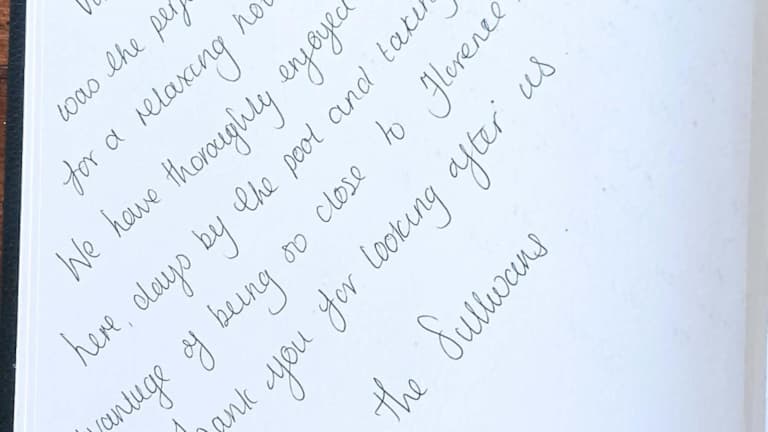 was the
for a relaxing
We have thoroughly enjoyed
here, days by the pool and taking
of being so close to Florence.
you for looking after us
the Sullivans.